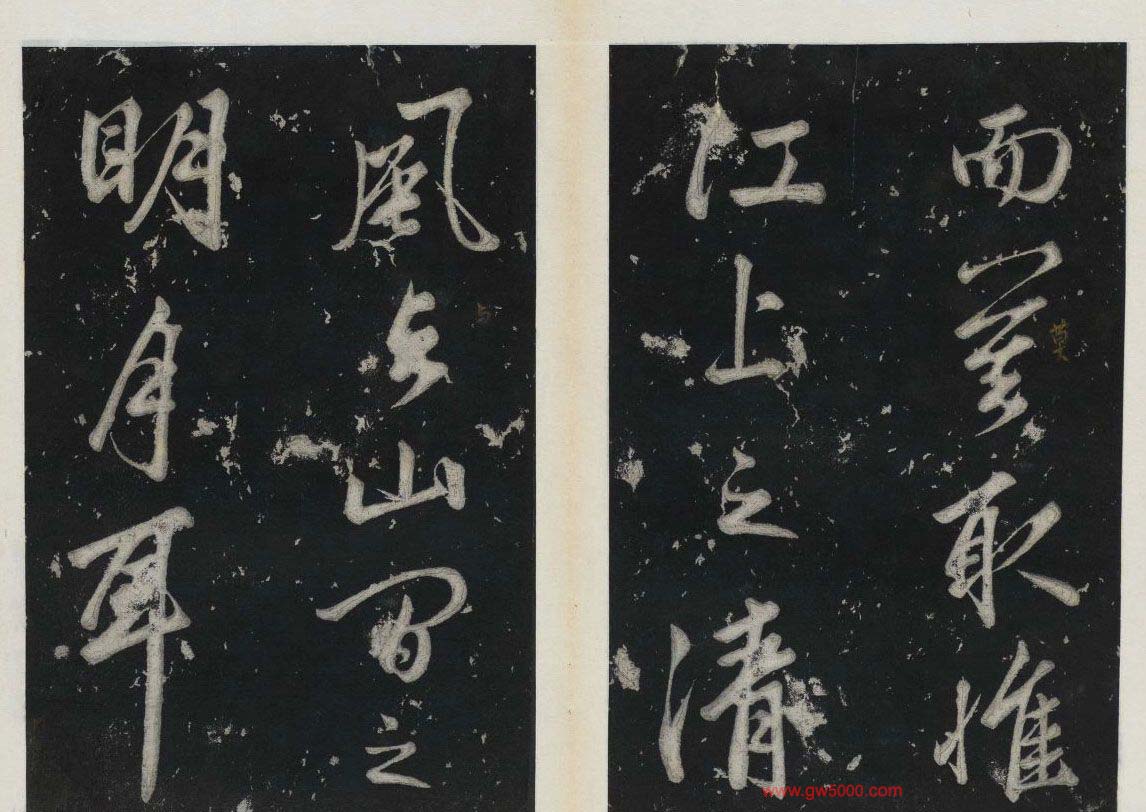 面莫取惟
江上之清
風与山間之
明月耳
莫
与
www.gw5000.com